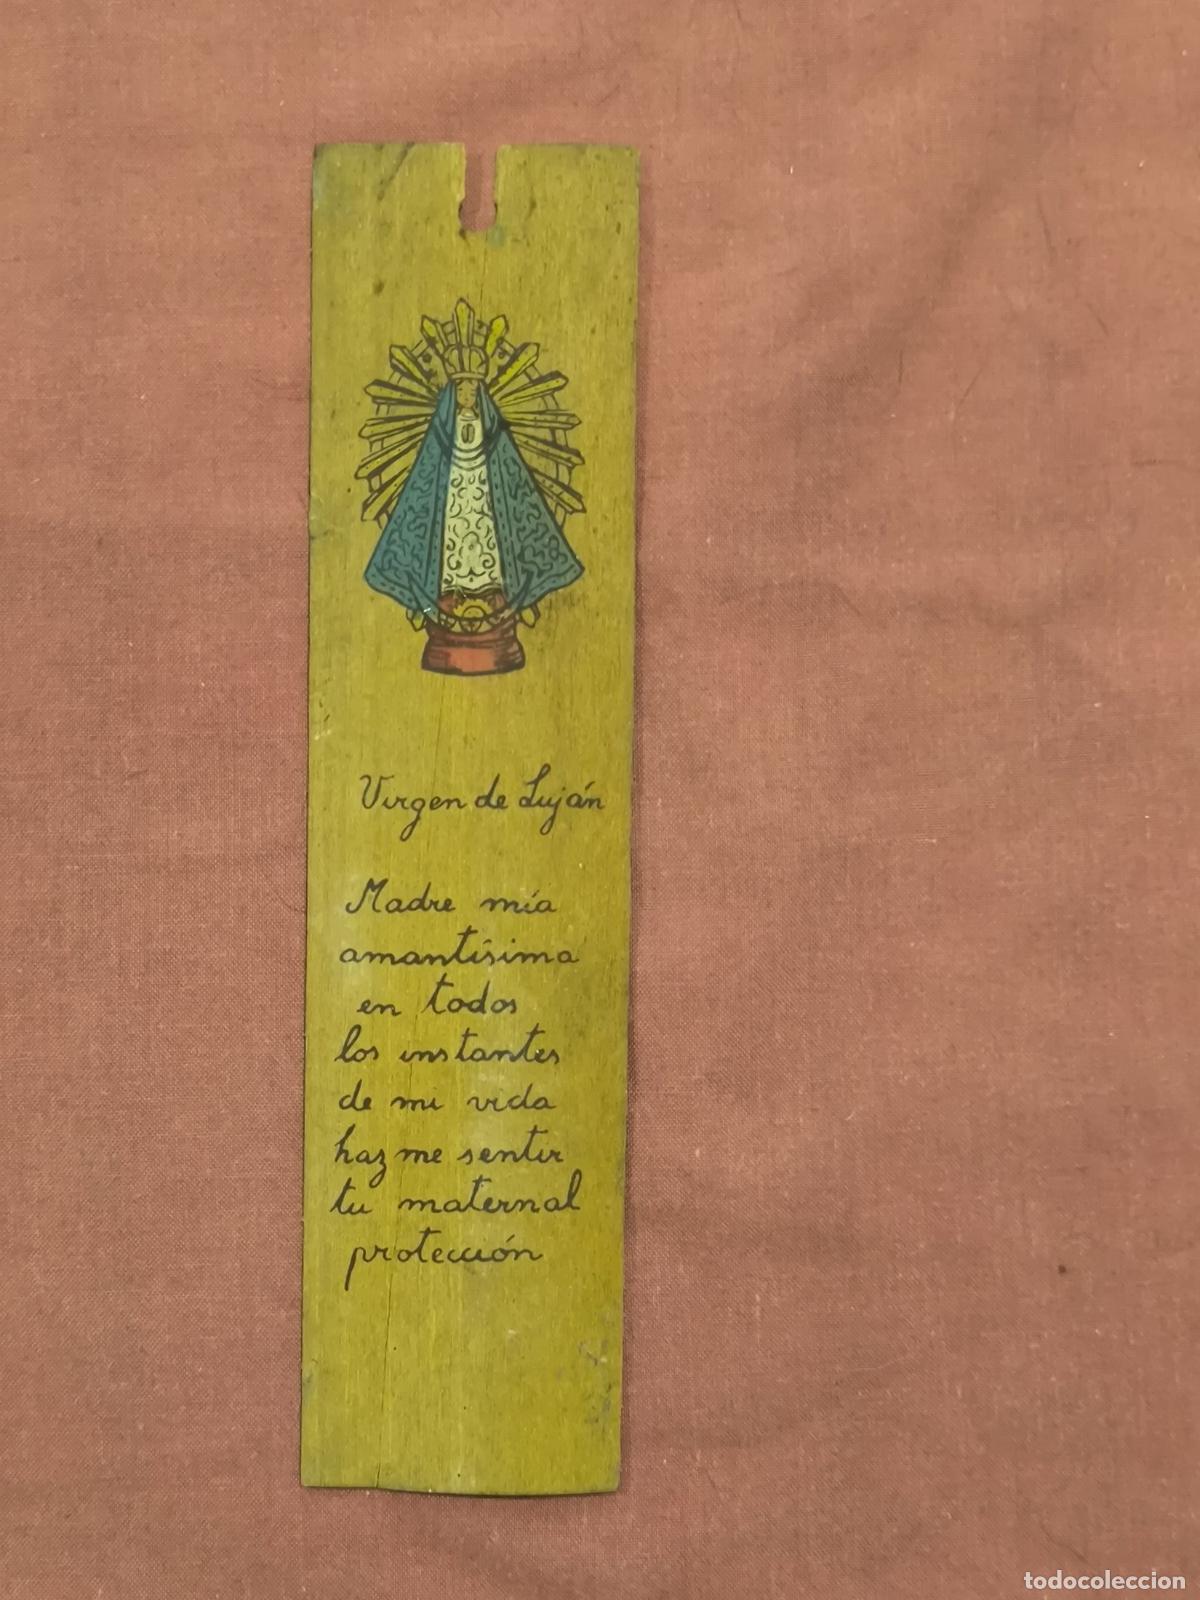 Virgen de Luján
Madre mía
amantísima
en todos
los instantes
de mi vida
haz me sentir
tu maternal
protección
todocoleccion